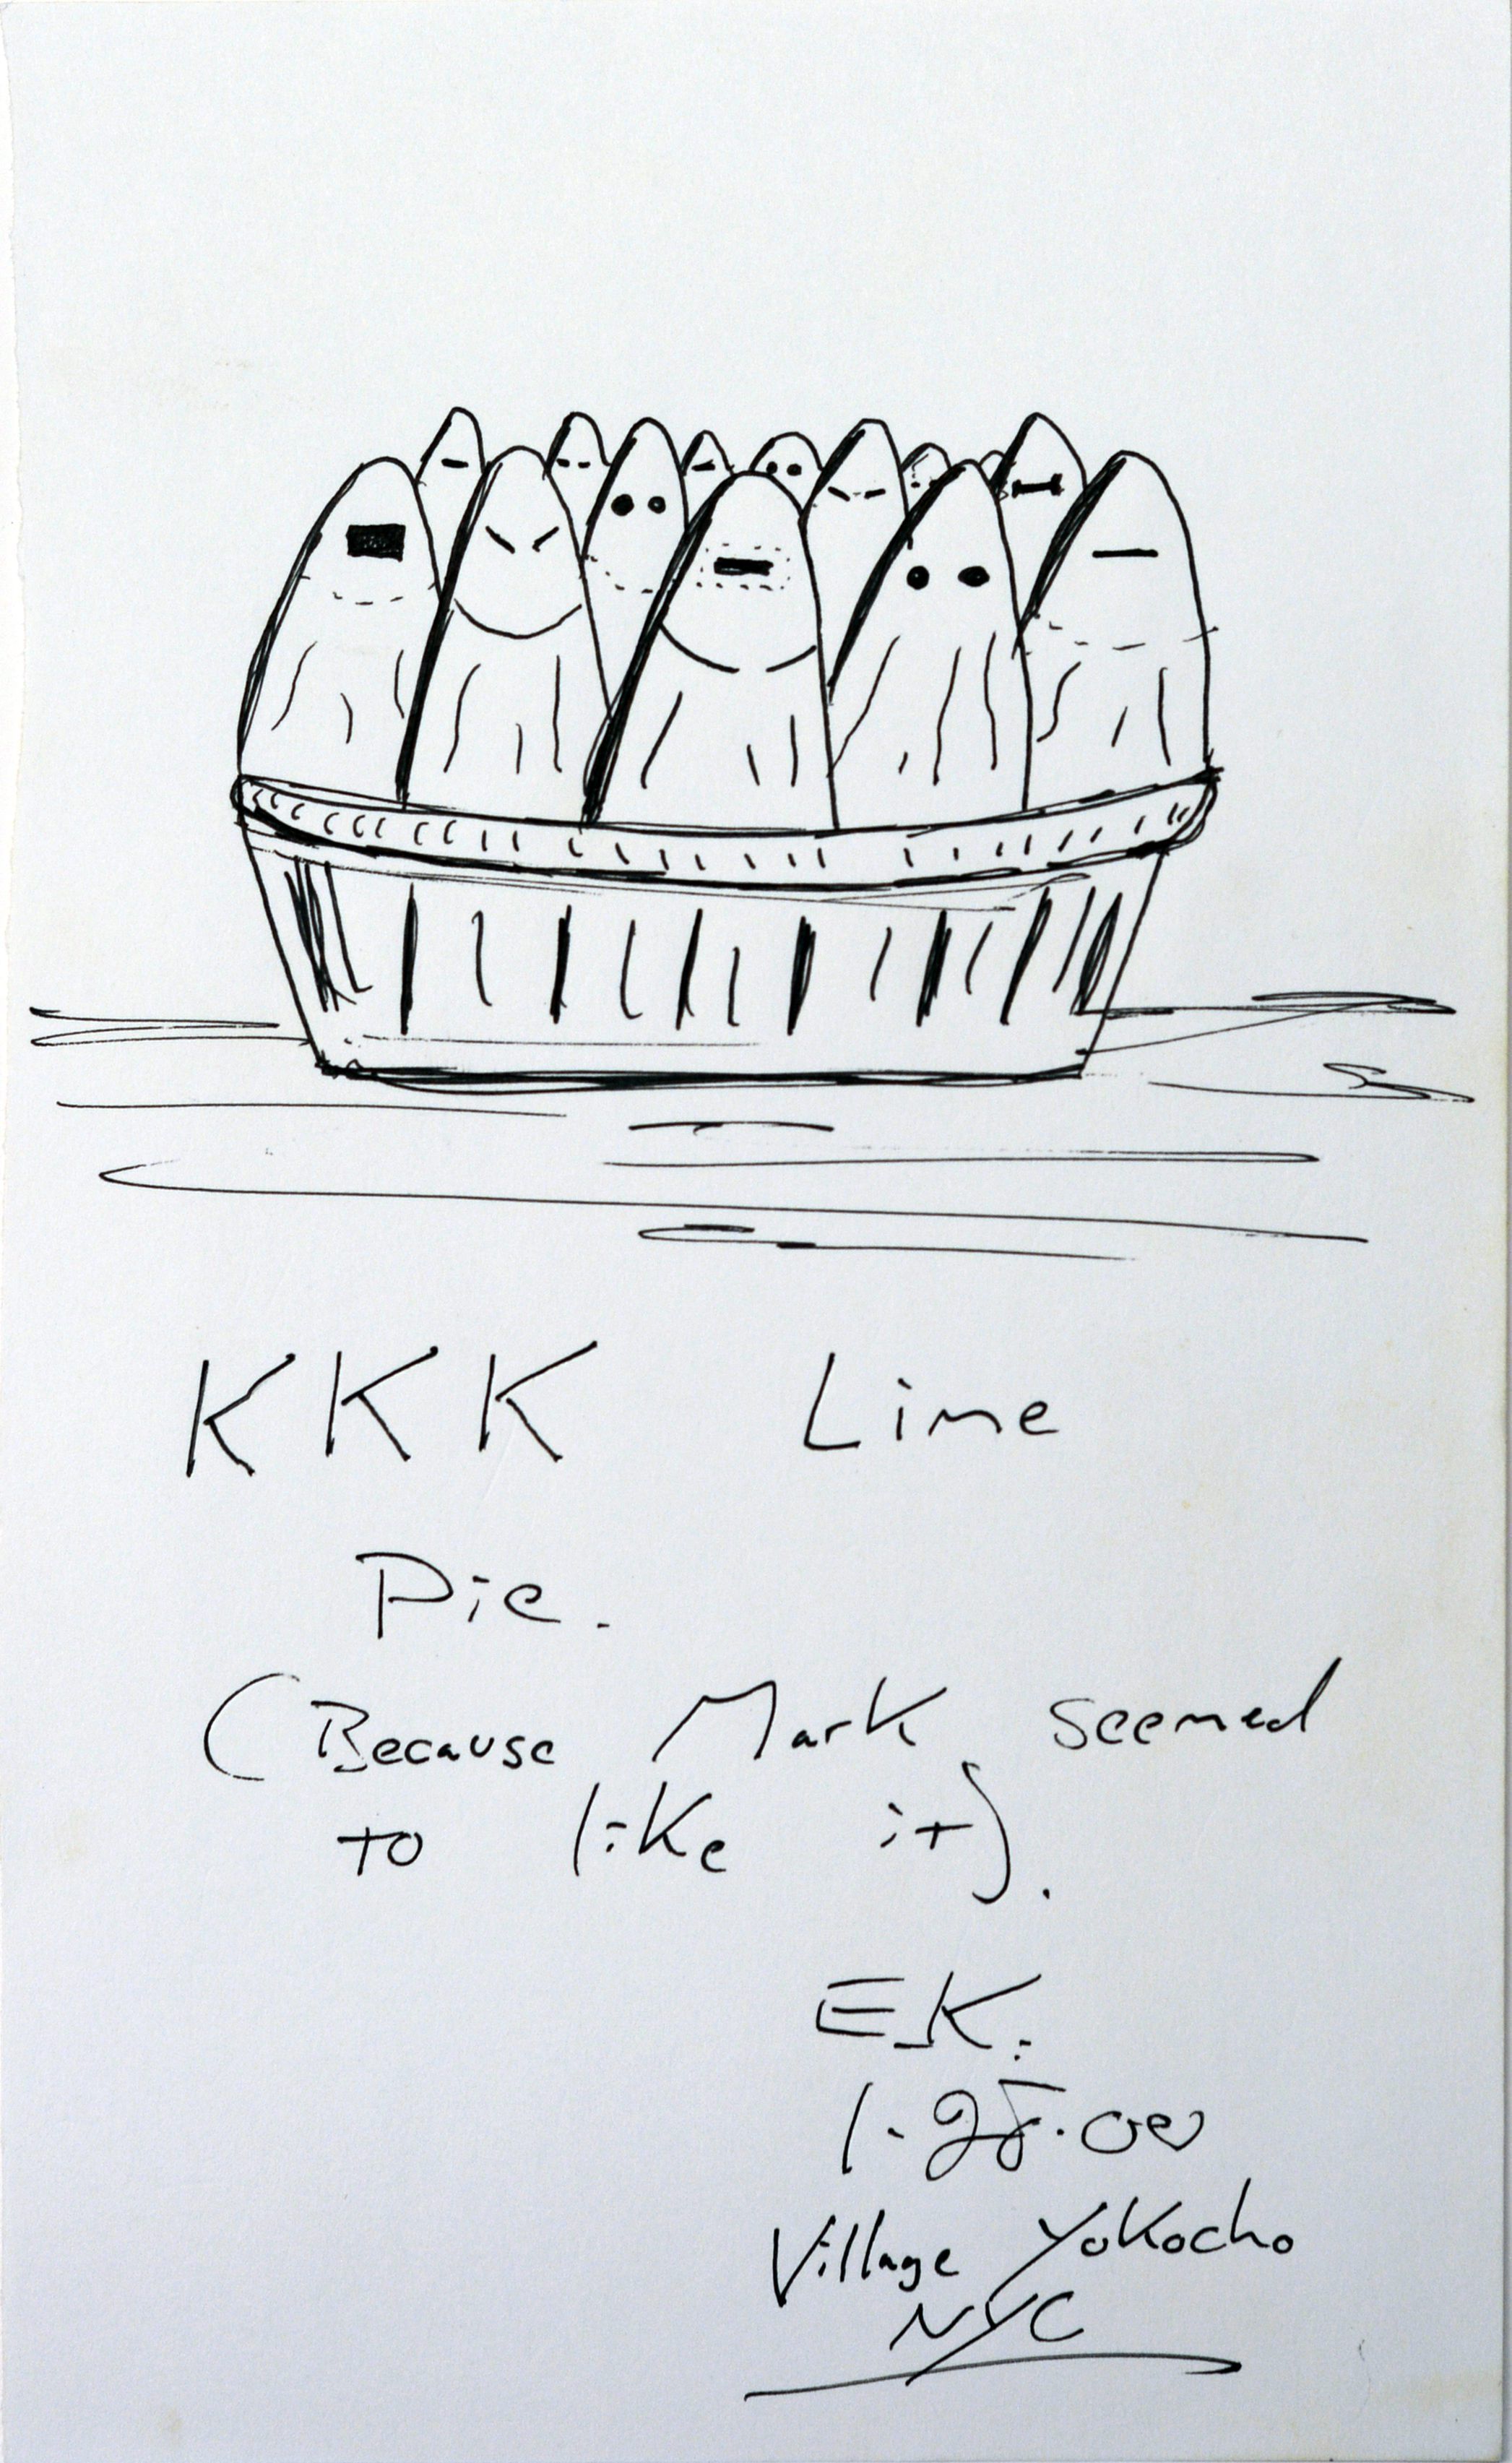 KKK Lime
Pie.
(Because Mark seemed
to like it).
EK.
1.25.00
Village Yokocho
NYC